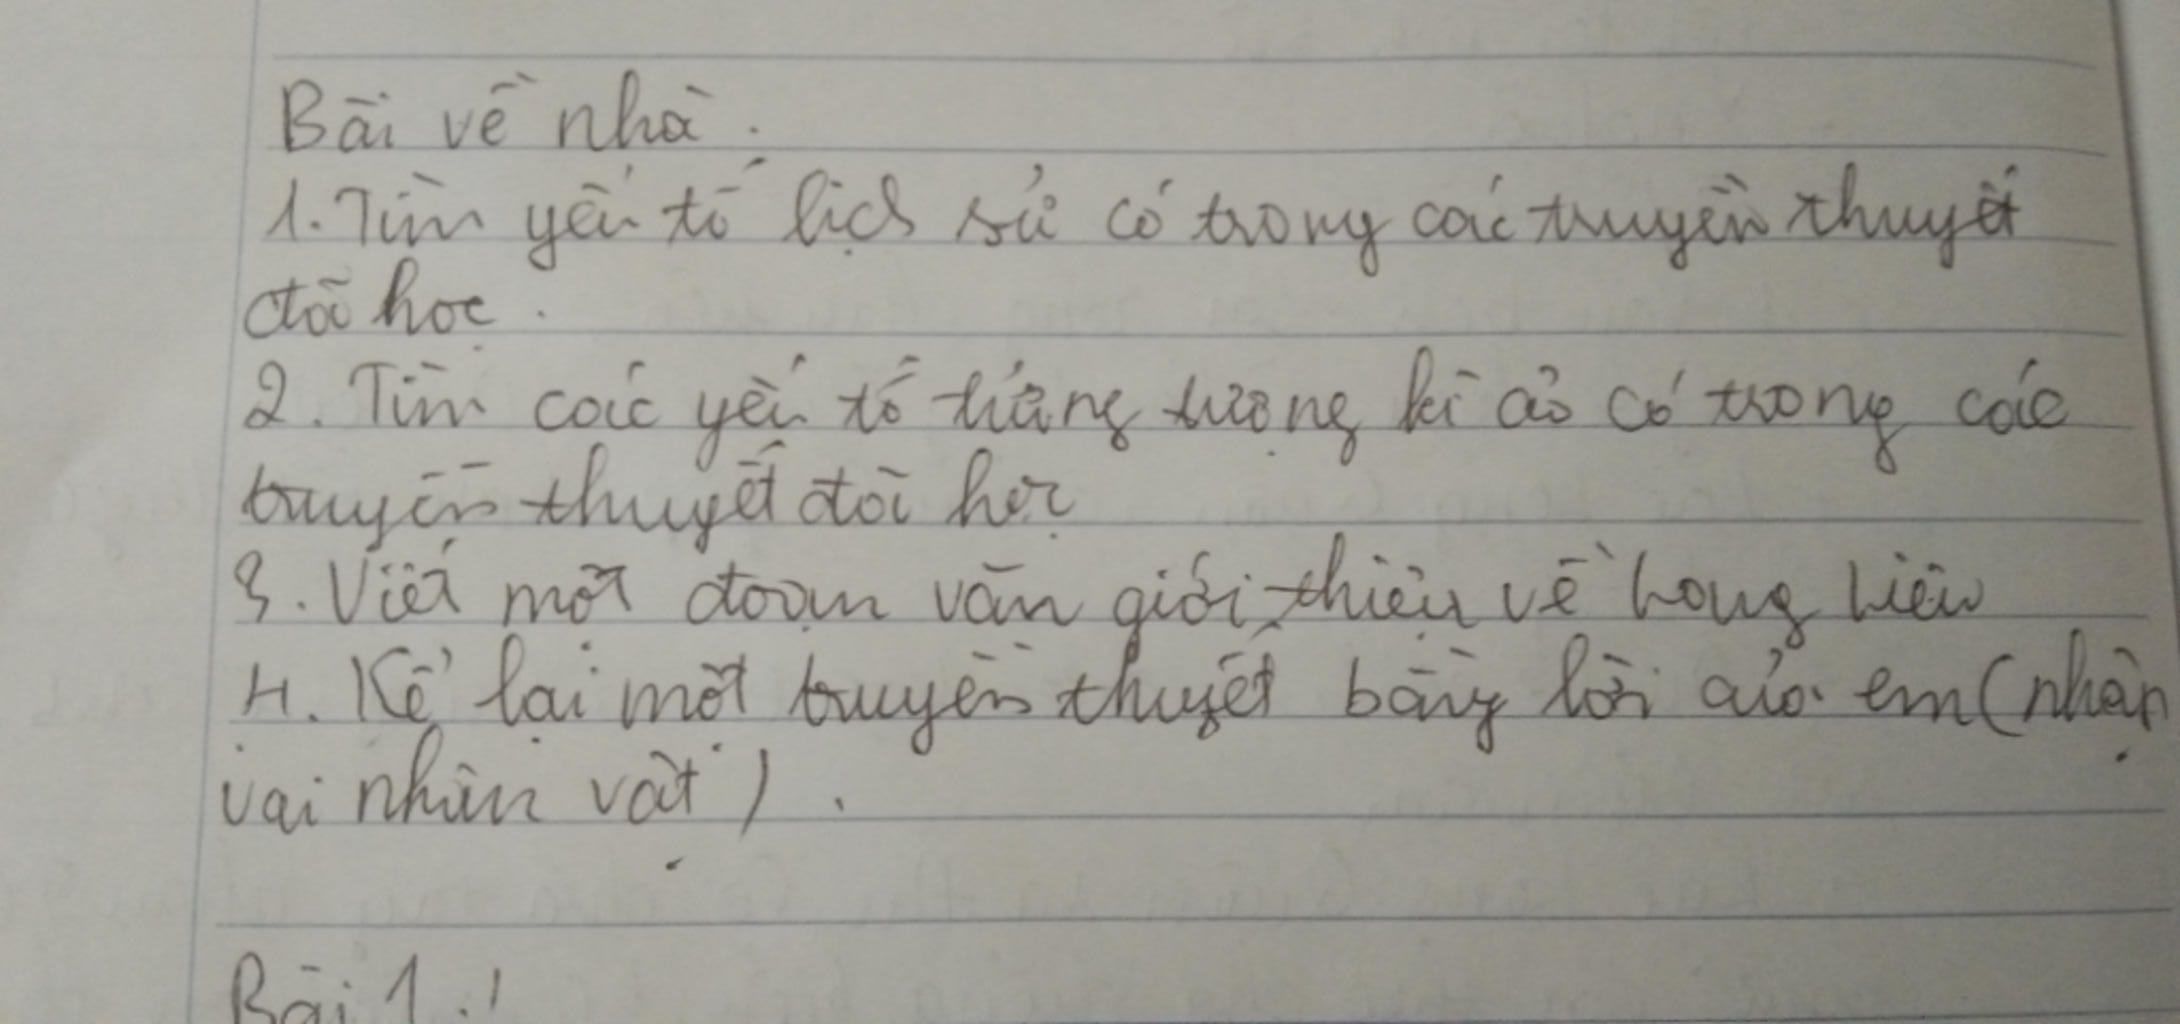 Bài về nhà.
1. Tìm yếu tố lịch sử có trong các truyền thuyết
đã học.
2. Tìm các yếu tố tưởng tượng kì ảo có trong các
truyền thuyết đã học
3. Viết một đoạn văn giới thiệu về Lang Liêu
4. Kể lại một truyền thuyết bằng lời của em (nhập
vai nhân vật).
Bài 1: